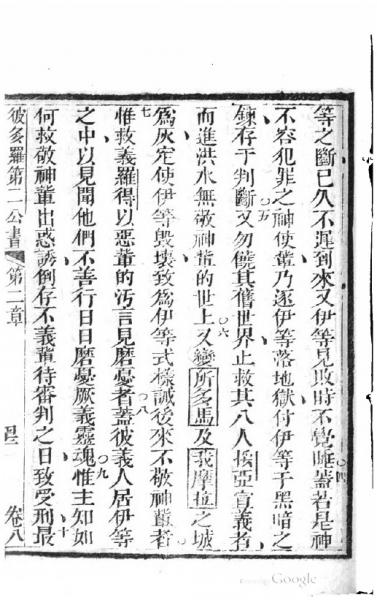 等之斷已久不遲到來又伊等見敗時不覺睡蓋若是神
不容犯罪之神使輩乃逐伊等落地獄付伊等于黑暗之
鍊存于判斷又勿饒其舊世界止救其八人挼亞宣義者
而進洪水無敬神輩的世上又變所多馬及我摩拉之城
為灰定使伊等毀壞致為伊等式樣誡後來不敬神輩者
惟救義羅得以惡輩的汚言見磨憂者蓋彼義人居伊等
之中以見聞他們不善行日日磨憂厥義靈魂惟主知如
何救敬神輩出惑誘倒存不義輩待審判之日致受刑最
彼多羅第二公書 第二章 卷八
四
五
六
七
八
九
十
Google